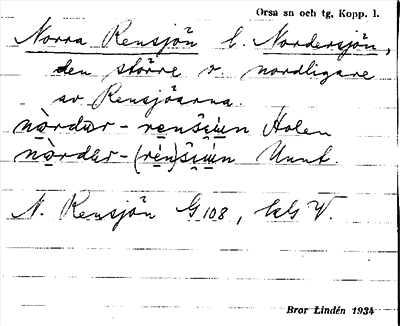 Orsa sn och tg, Kopp. l.
Norra Rensjön l. Nordersjön,
den större o. nordligare
av Rensjöarna.
nò̱rdɯr - re̱nšɛ̱ɯn Holen
nò̱rdɯr - (re̱n)šɛ̱ɯn Unnt.
N. Rensjön G 108, kG V.
Bror Lindén 1934